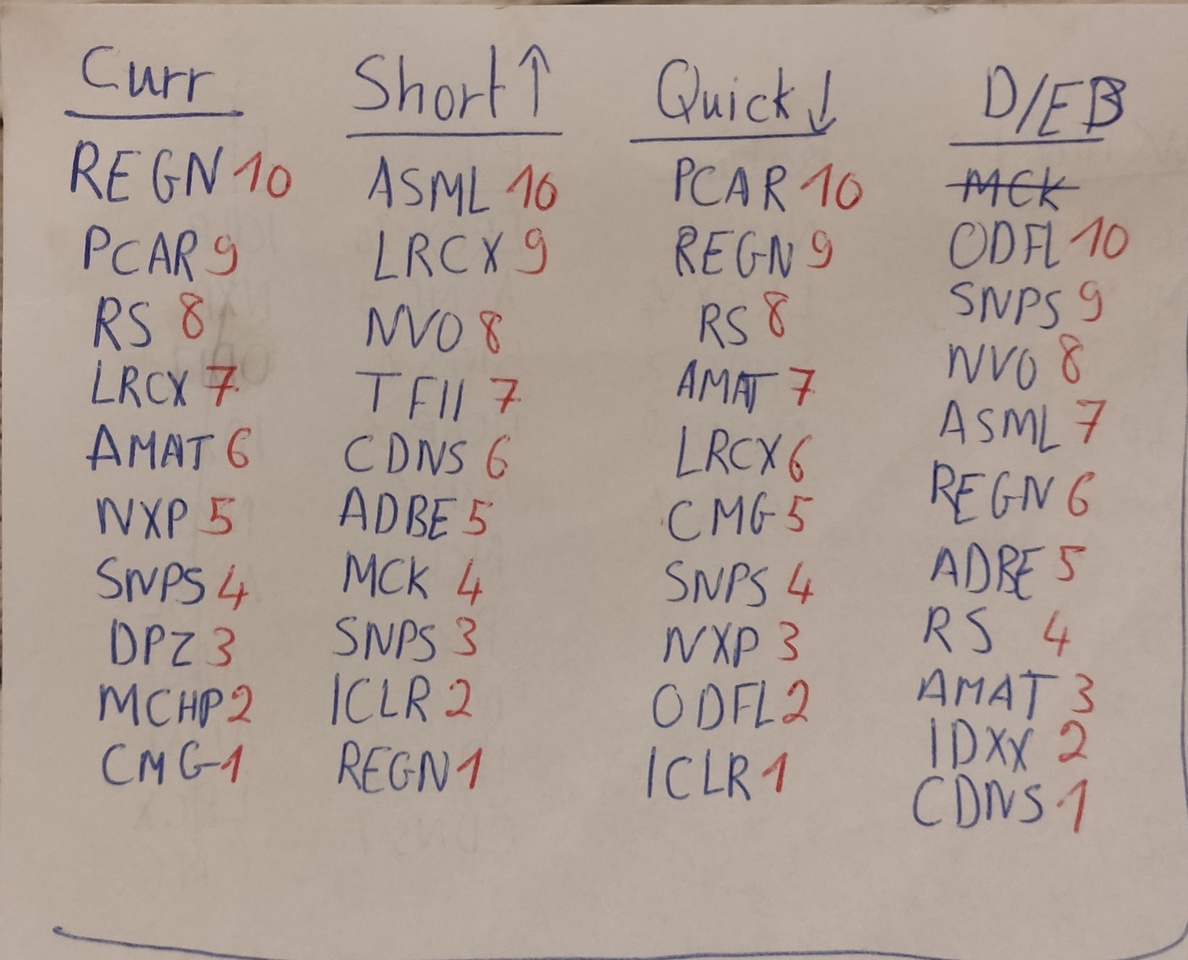 Curr Short↑ Quick↓ D/EB
REGN 10 ASML 10 PCAR 10 ~~MCK~~
PCAR 9 LRCX 9 REGN 9 ODFL 10
RS 8 NVO 8 RS 8 SNPS 9
LRCX 7 TFII 7 AMAT 7 NVO 8
AMAT 6 CDNS 6 LRCX 6 ASML 7
NXP 5 ADBE 5 CMG 5 REGN 6
SNPS 4 MCK 4 SNPS 4 ADBE 5
DPZ 3 SNPS 3 NXP 3 RS 4
MCHP 2 ICLR 2 ODFL 2 AMAT 3
CMG 1 REGN 1 ICLR 1 IDXX 2
CDNS 1